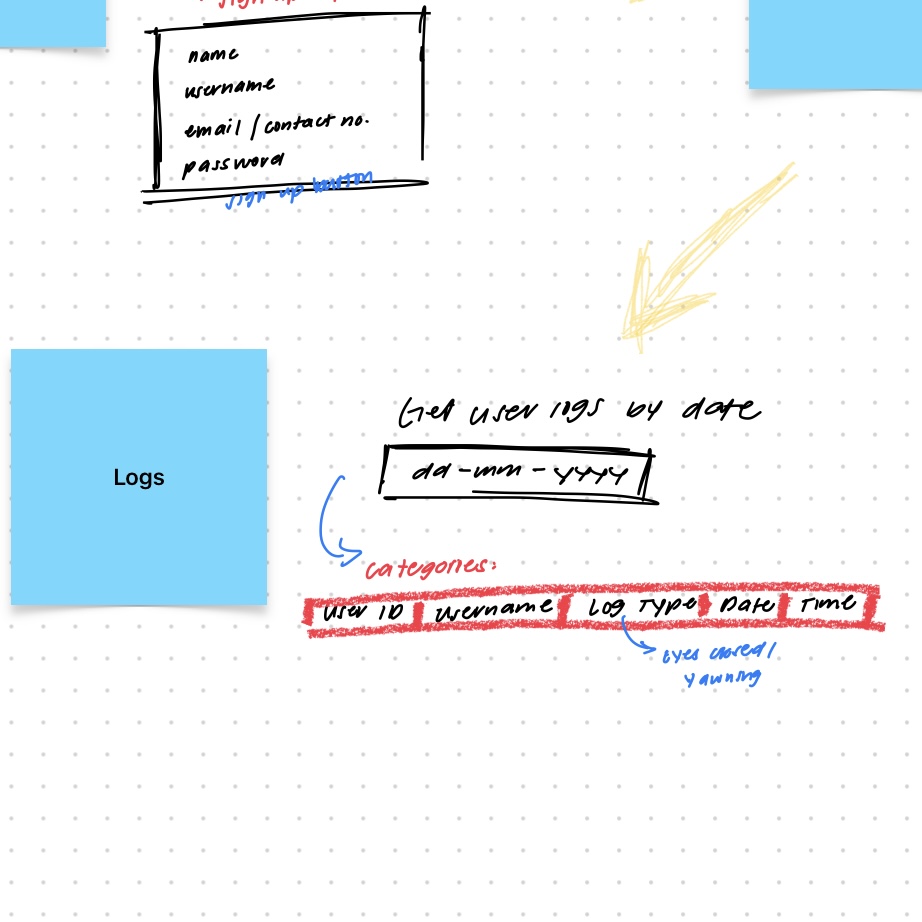 sign up
name
username
email / contact no.
password
sign up button
Get user logs by date
dd-mm-yyyy
Logs
categories:
User ID Username Log Type Date Time
Eyes closed/
Yawning